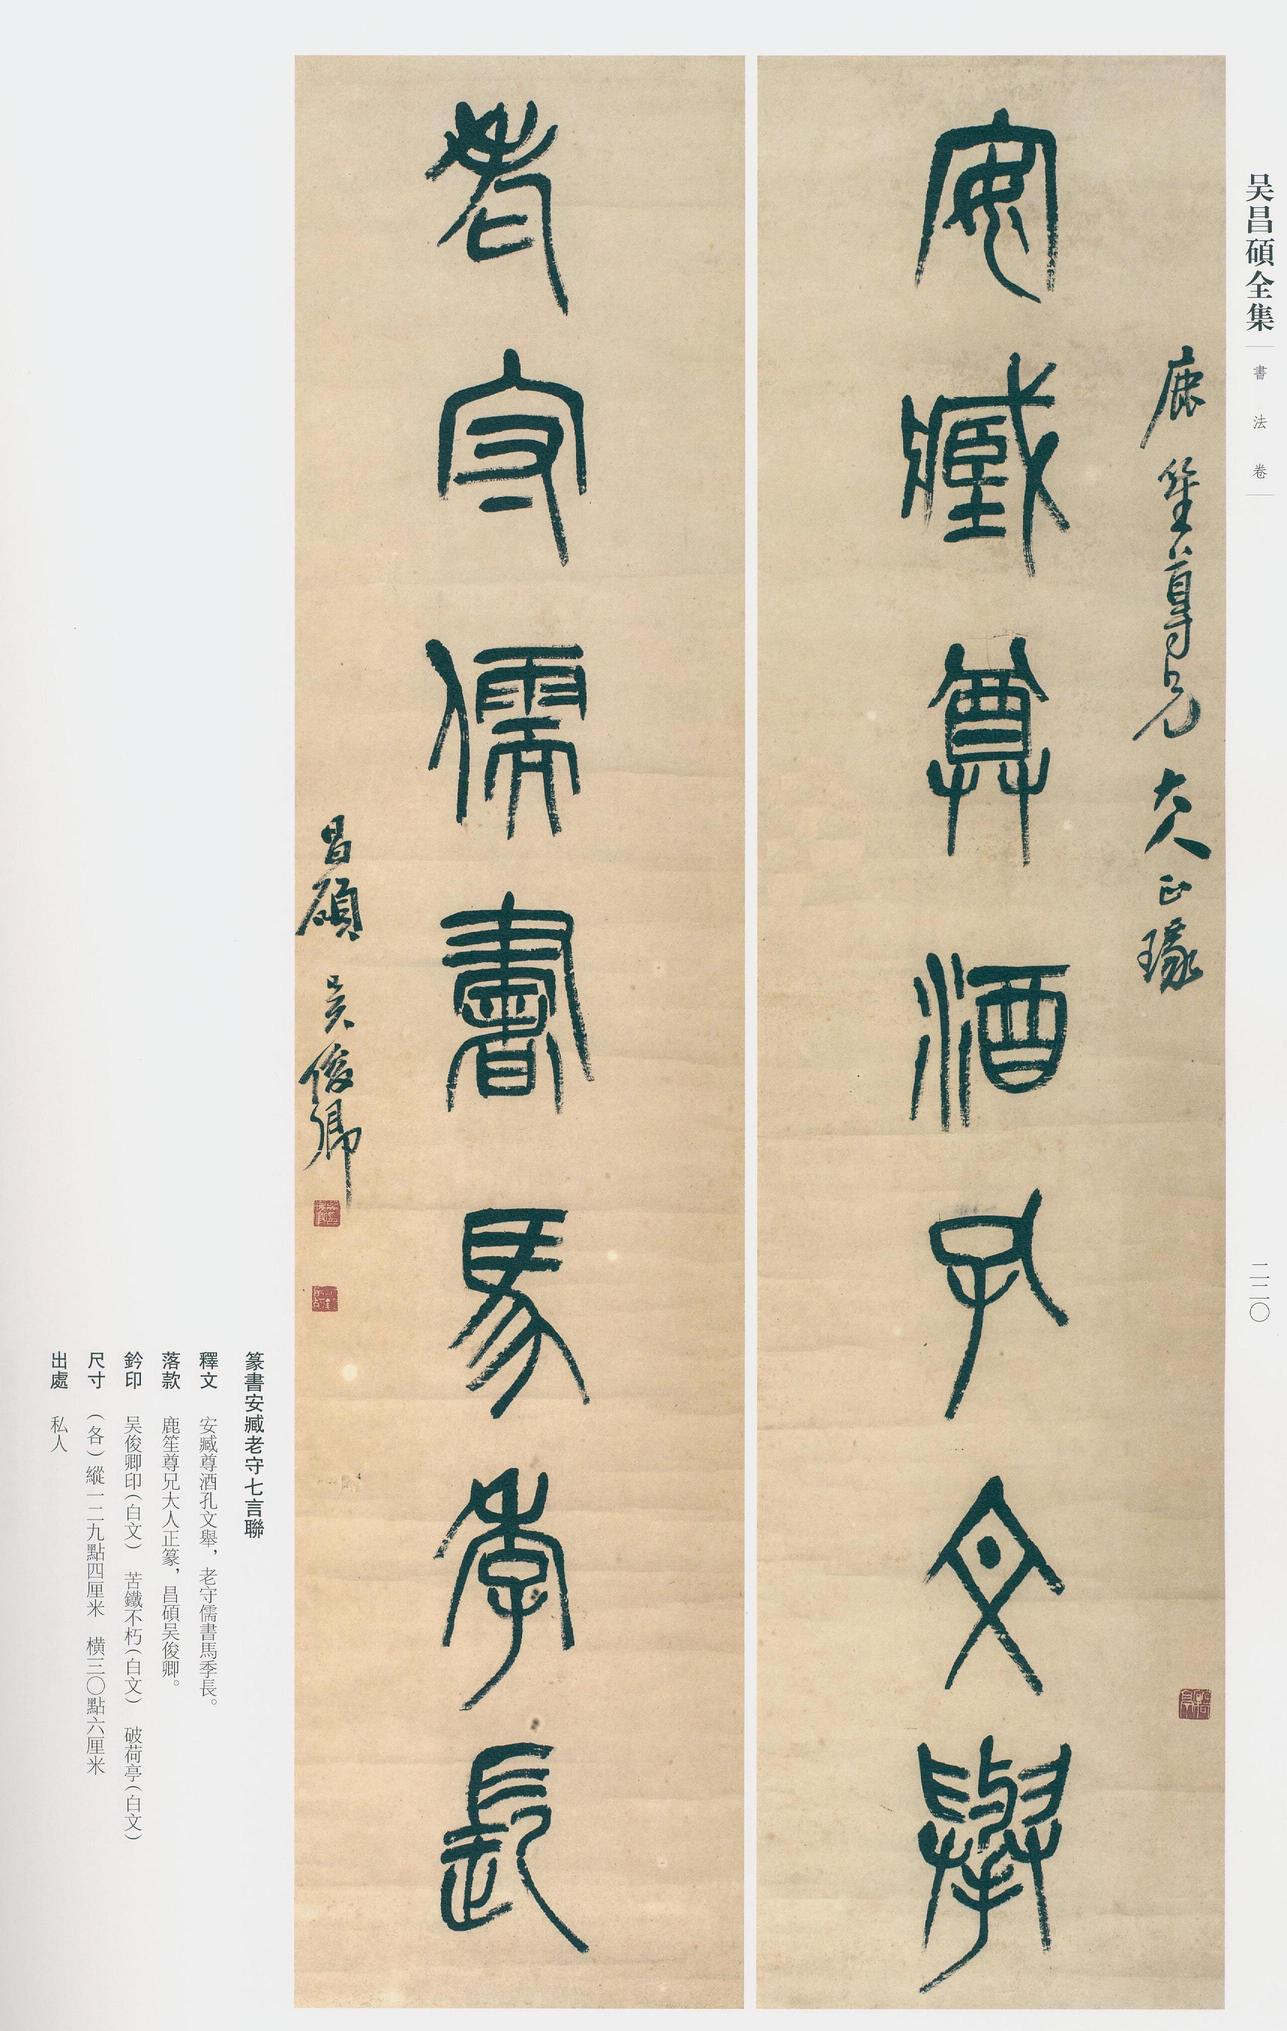 吴昌碩全集
書法卷
二二〇
鹿笙尊兄大人正瑑
安臧尊酒孔文舉
老守儒書馬季長
昌碩吴俊卿
篆書安臧老守七言聯
釋文 安臧尊酒孔文舉，老守儒書馬季長。
落款 鹿笙尊兄大人正篆，昌碩吴俊卿。
鈐印 吴俊卿印(白文) 苦鐵不朽(白文) 破荷亭(白文)
尺寸 (各)縱一二九點四厘米 橫三〇點六厘米
出處 私人